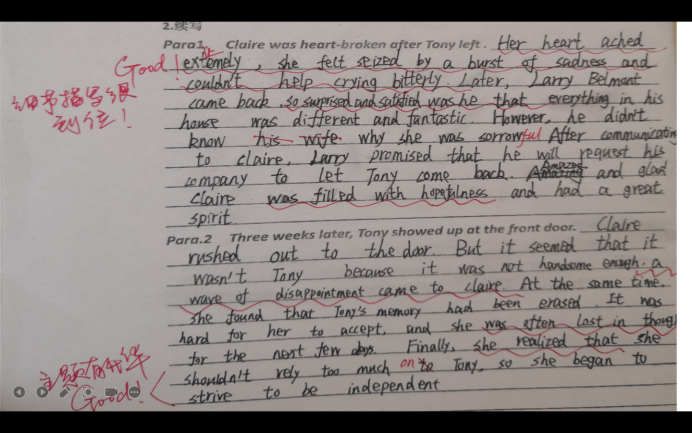 2.续写
Para1 Claire was heart-broken after Tony left. Her heart ached
Good! extemely, she felt seized by a burst of sadness and
couldn't help crying bitterly. Later, Larry Belmont
细节描写很
到位!
came back, so surprised and satisfied was he that everything in his
house was different and fantastic. However, he didn't
know his wife why she was sorrowful After communicating
to claire, Larry promised that he will request his
company to let Tony come back. Amazed and glad
claire was filled with hopefulness and had a great
spirit
Para.2 Three weeks later, Tony showed up at the front door. Claire
rushed out to the door. But it seemed that it
wasn't Tony because it was not handsome enough. a
wave of disappointment came to claire. At the same time,
she found that Tony's memory had been erased. It was
hard for her to accept, and she was often lost in though
for the next few days. Finally, she realized that she
shouldn't rely too much on to Tony, so she began to
strive to be independent
主题有升华
Good!